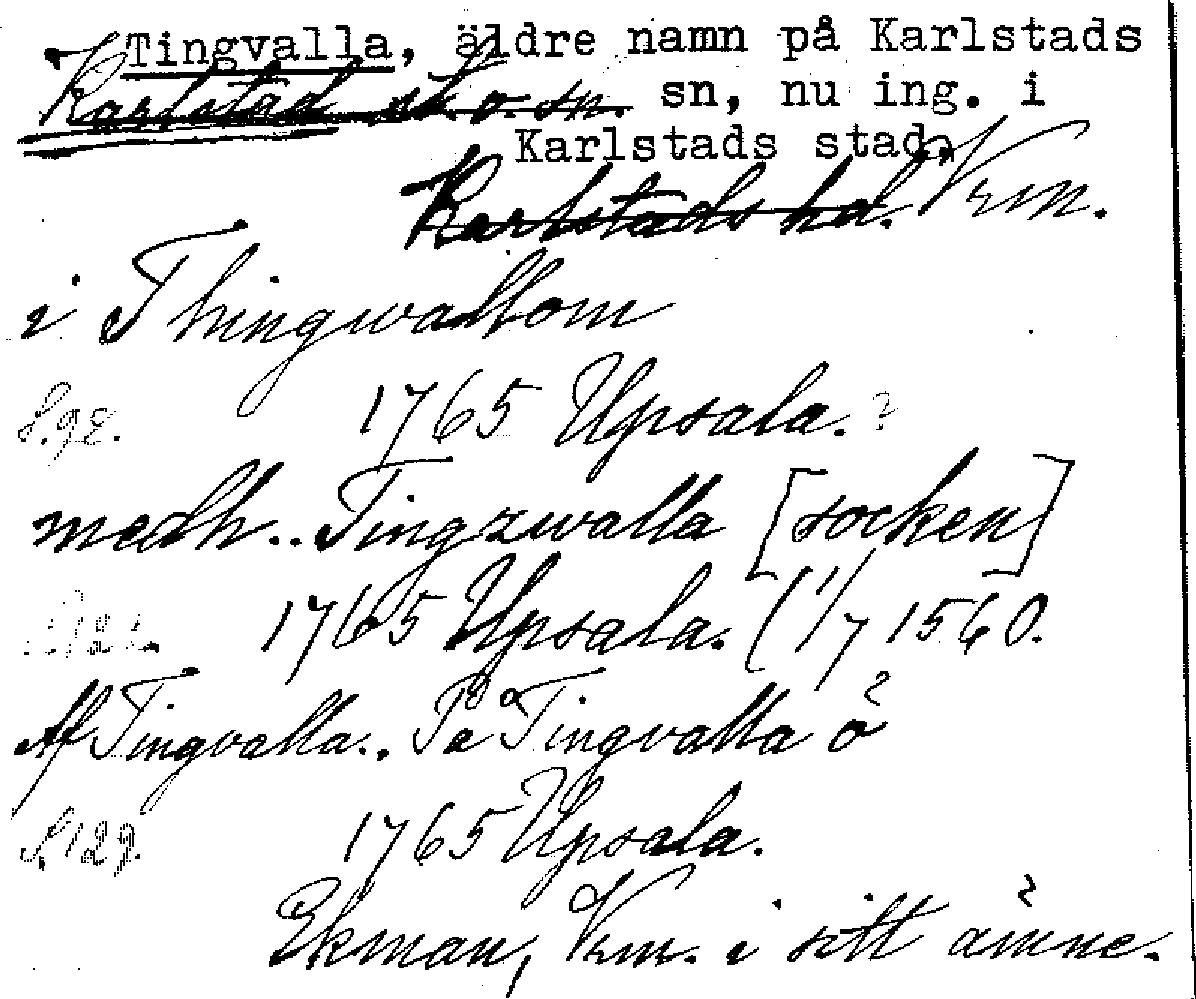 Tingvalla, äldre namn på Karlstads
Karlstad st. o. sn. sn, nu ing. i
Karlstads stad,
Karlstads hd. Vrm.
i Thingwallom
S. 92. 1765 Upsala.?
medh.. Tingzwalla [socken]
1765 Upsala. (1/7 1560.
Af Tingvalla.. På Tingvalla ö
S. 129. 1765 Upsala.
Ekman, Vrm. i sitt ämne.